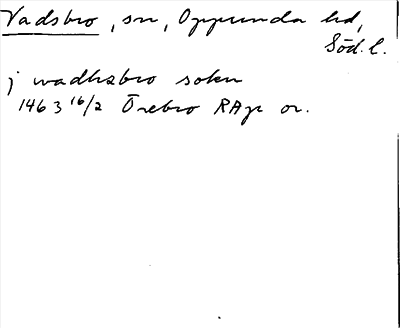 Vadsbro, sn, Oppunda hd,
Söd. l.
j wadhsbro sokn
1463 16/2 Örebro RAp or.